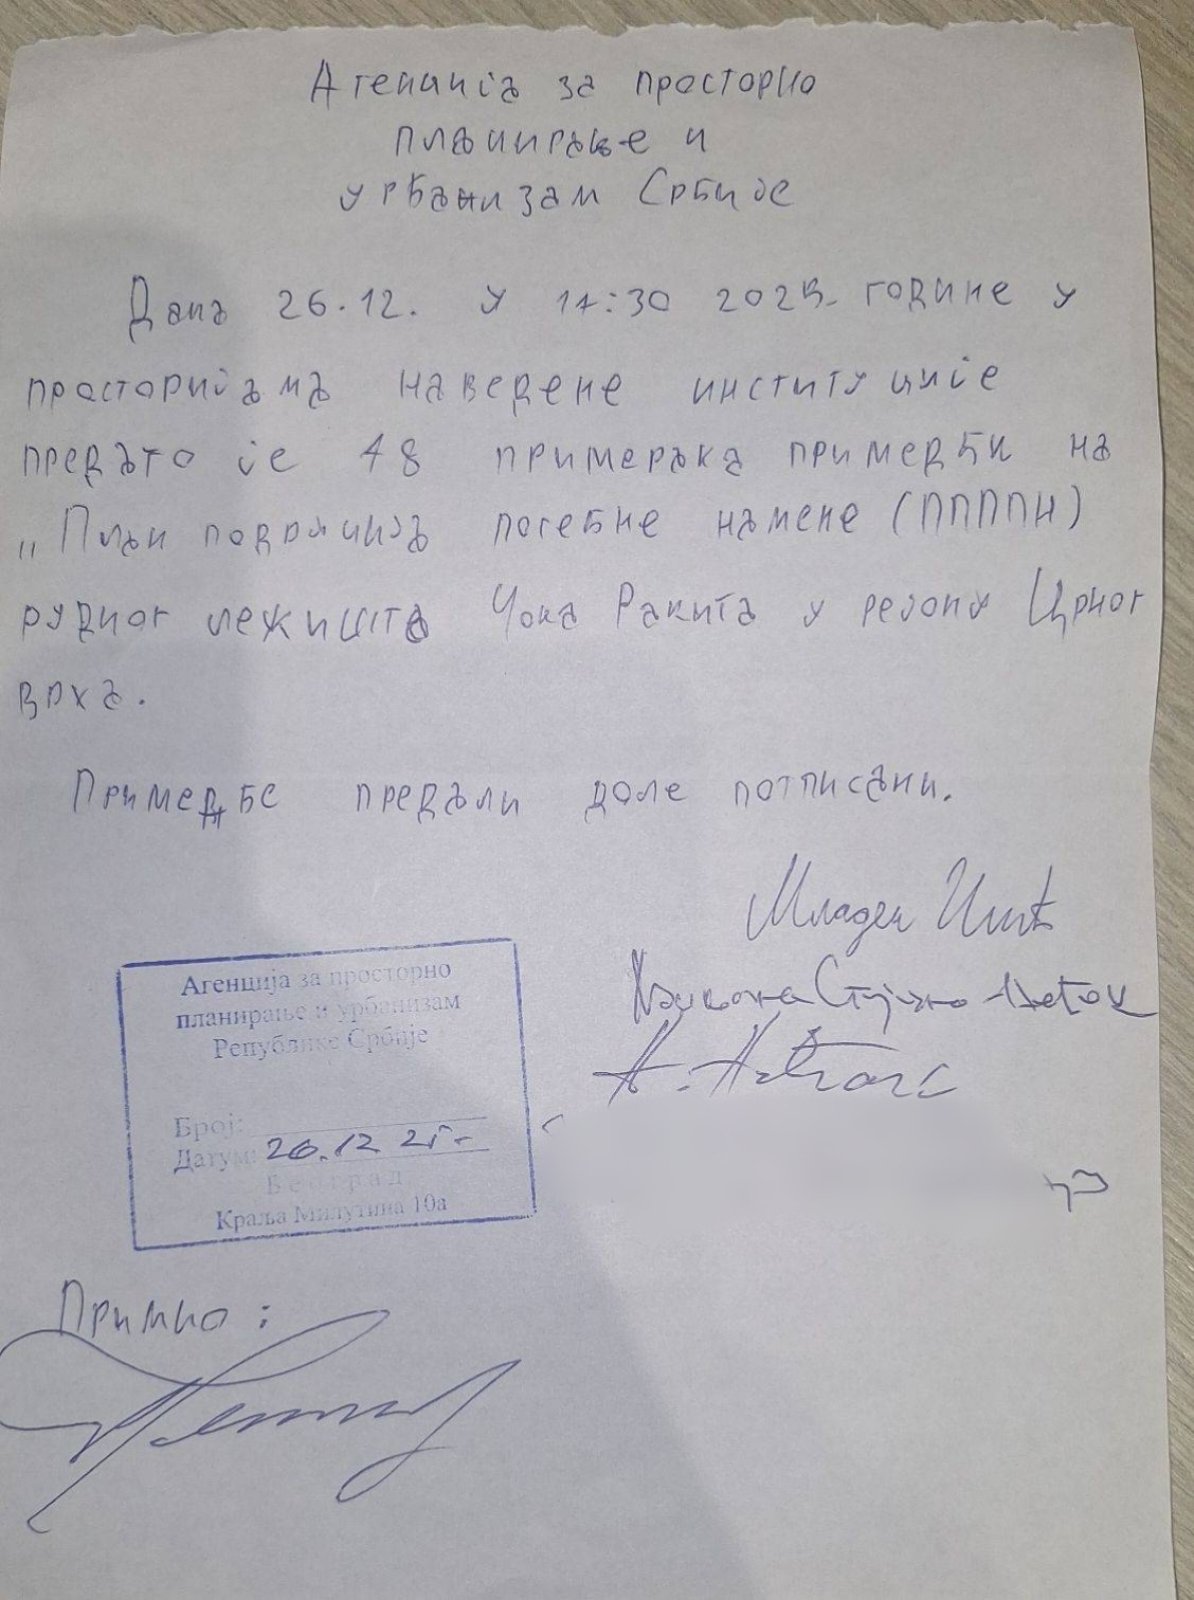 Агенција за просторно
планирање и
урбанизам Србије
Дана 26.12. у 14:30 2025. године у
просторијама наведене институције
предато је 48 примерака примедби на
„План подручија посебне намене (ПППППН)
рудног лежишта Чока Ракита у рејону Црног
врха.
Примедбе предали доле потписани.
Младен
Агенција за просторно
планирање и урбанизам
Републике Србије
Број:
Датум: 26.12 25.
Београд
Краља Милутина 10а
Примио: